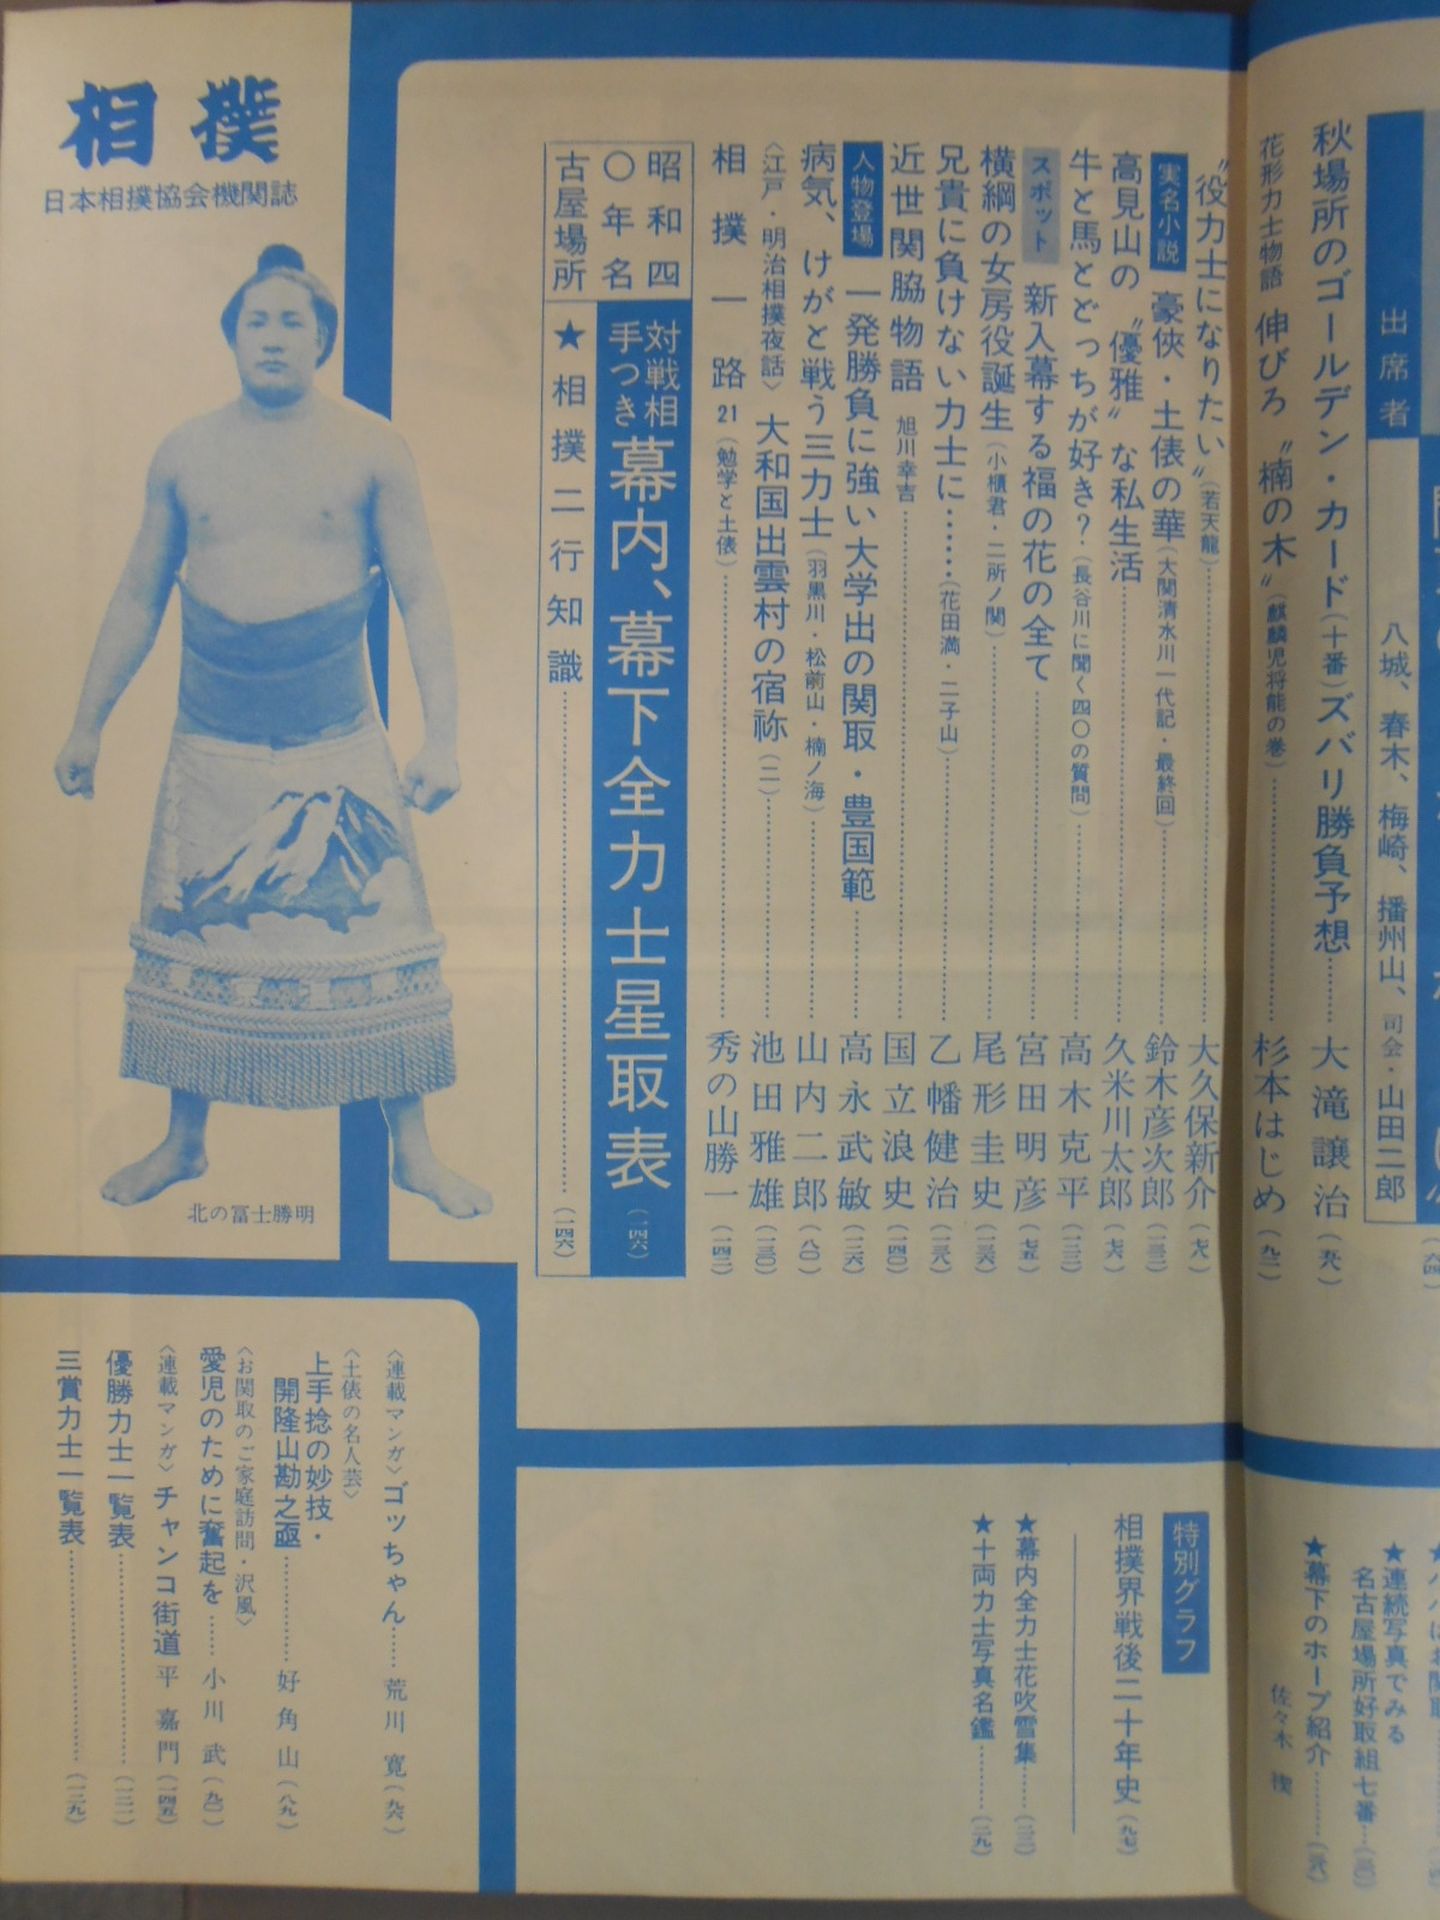 出席者
八城、春木、梅崎、播州山、司会・山田二郎
秋場所のゴールデン・カード(十番)ズバリ勝負予想……大滝譲治
花形力士物語 伸びろ〝楠の木〟(麒麟児将能の巻)……杉本はじめ(九二)
〝役力士になりたい〟(若天龍)……大久保新介(七八)
実名小説 豪俠・土俵の華(大関清水川一代記・最終回)……鈴木彦次郎(一三二)
高見山の〝優雅〟な私生活……久米川太郎(七六)
牛と馬とどっちが好き?(長谷川に聞く四〇の質問)……高木克平(一二二)
スポット 新入幕する福の花の全て……宮田明彦(七五)
横綱の女房役誕生(小櫃君・二所ノ関)……尾形圭史(一三六)
兄貴に負けない力士に……(花田満・二子山)……乙幡健治(一三八)
近世関脇物語 旭川幸吉……国立浪史(一四〇)
人物登場 一発勝負に強い大学出の関取・豊国範……高永武敏(一二六)
病気、けがと戦う三力士(羽黒川・松前山・楠ノ海)……山内二郎(八〇)
〈江戸・明治相撲夜話〉 大和国出雲村の宿祢(二)……池田雅雄(一三〇)
相撲一路21(勉学と土俵)……秀の山勝一(一四二)
昭和四〇年名古屋場所
対戦相手つき 幕内、幕下全力士星取表(一四六)
★相撲二行知識……(一四六)
相撲
日本相撲協会機関誌
北の冨士勝明
★連続写真でみる
名古屋場所好取組七番…(三〇)
★幕下のホープ紹介……(三八)
佐々木
特別グラフ
相撲界戦後二十年史(九七)
★幕内全力士花吹雪集……(二二)
★十両力士写真名鑑……(二九)
〈連載マンガ〉ゴッちゃん……荒川 寛(九六)
〈土俵の名人芸〉
上手捻の妙技・
開隆山勘之亟……好角山(八九)
〈お関取のご家庭訪問・沢風〉
愛児のために奮起を……小川 武(九〇)
〈連載マンガ〉チャンコ街道 平 嘉門(一四五)
優勝力士一覧表……(一二一)
三賞力士一覧表……(一二九)